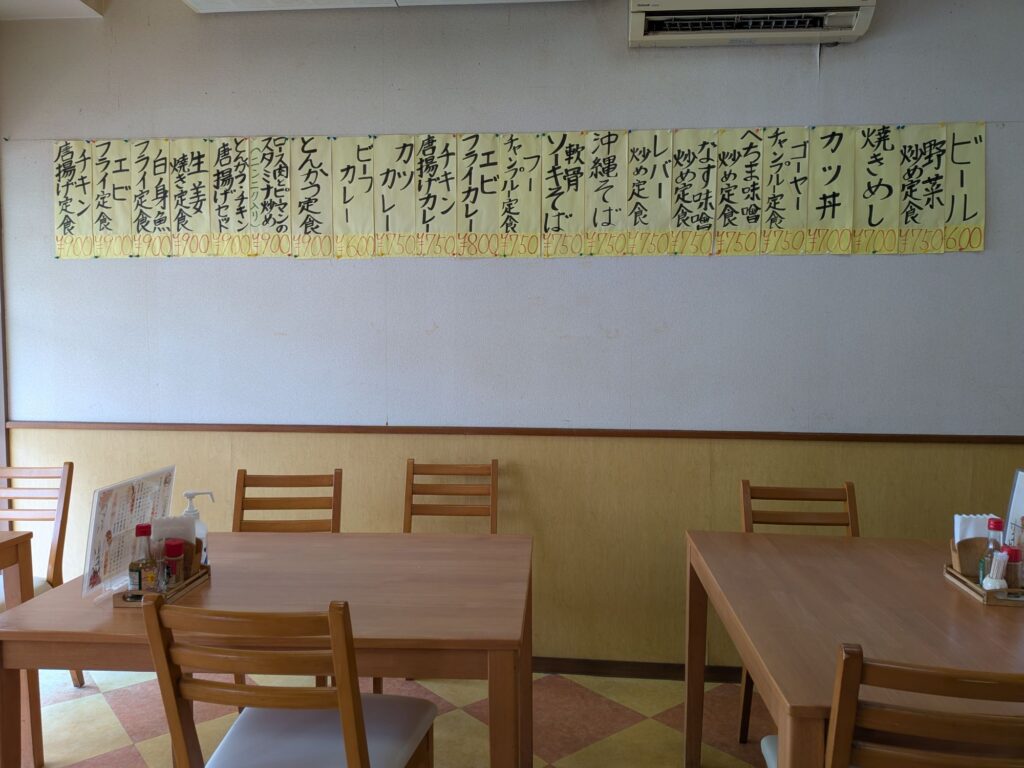 ビール
¥600
野菜
炒め定食
¥750
焼きめし
¥700
カツ丼
¥700
ゴーヤー
チャンプル定食
¥750
へちま味噌
炒め定食
¥750
なす味噌
炒め定食
¥750
レバー
炒め定食
¥750
沖縄そば
¥750
軟骨
ソーキそば
¥750
フー
チャンプル定食
¥750
エビ
フライカレー
¥800
チキン
唐揚げカレー
¥750
カツ
カレー
¥750
ビーフ
カレー
¥600
とんかつ定食
¥900
ロース肉とピーマンの
スタミナ炒め
¥900
とんかつ・チキン
唐揚げセット
¥900
生姜
焼き定食
¥900
白身魚
フライ定食
¥900
エビ
フライ定食
¥900
チキン
唐揚げ定食
¥900